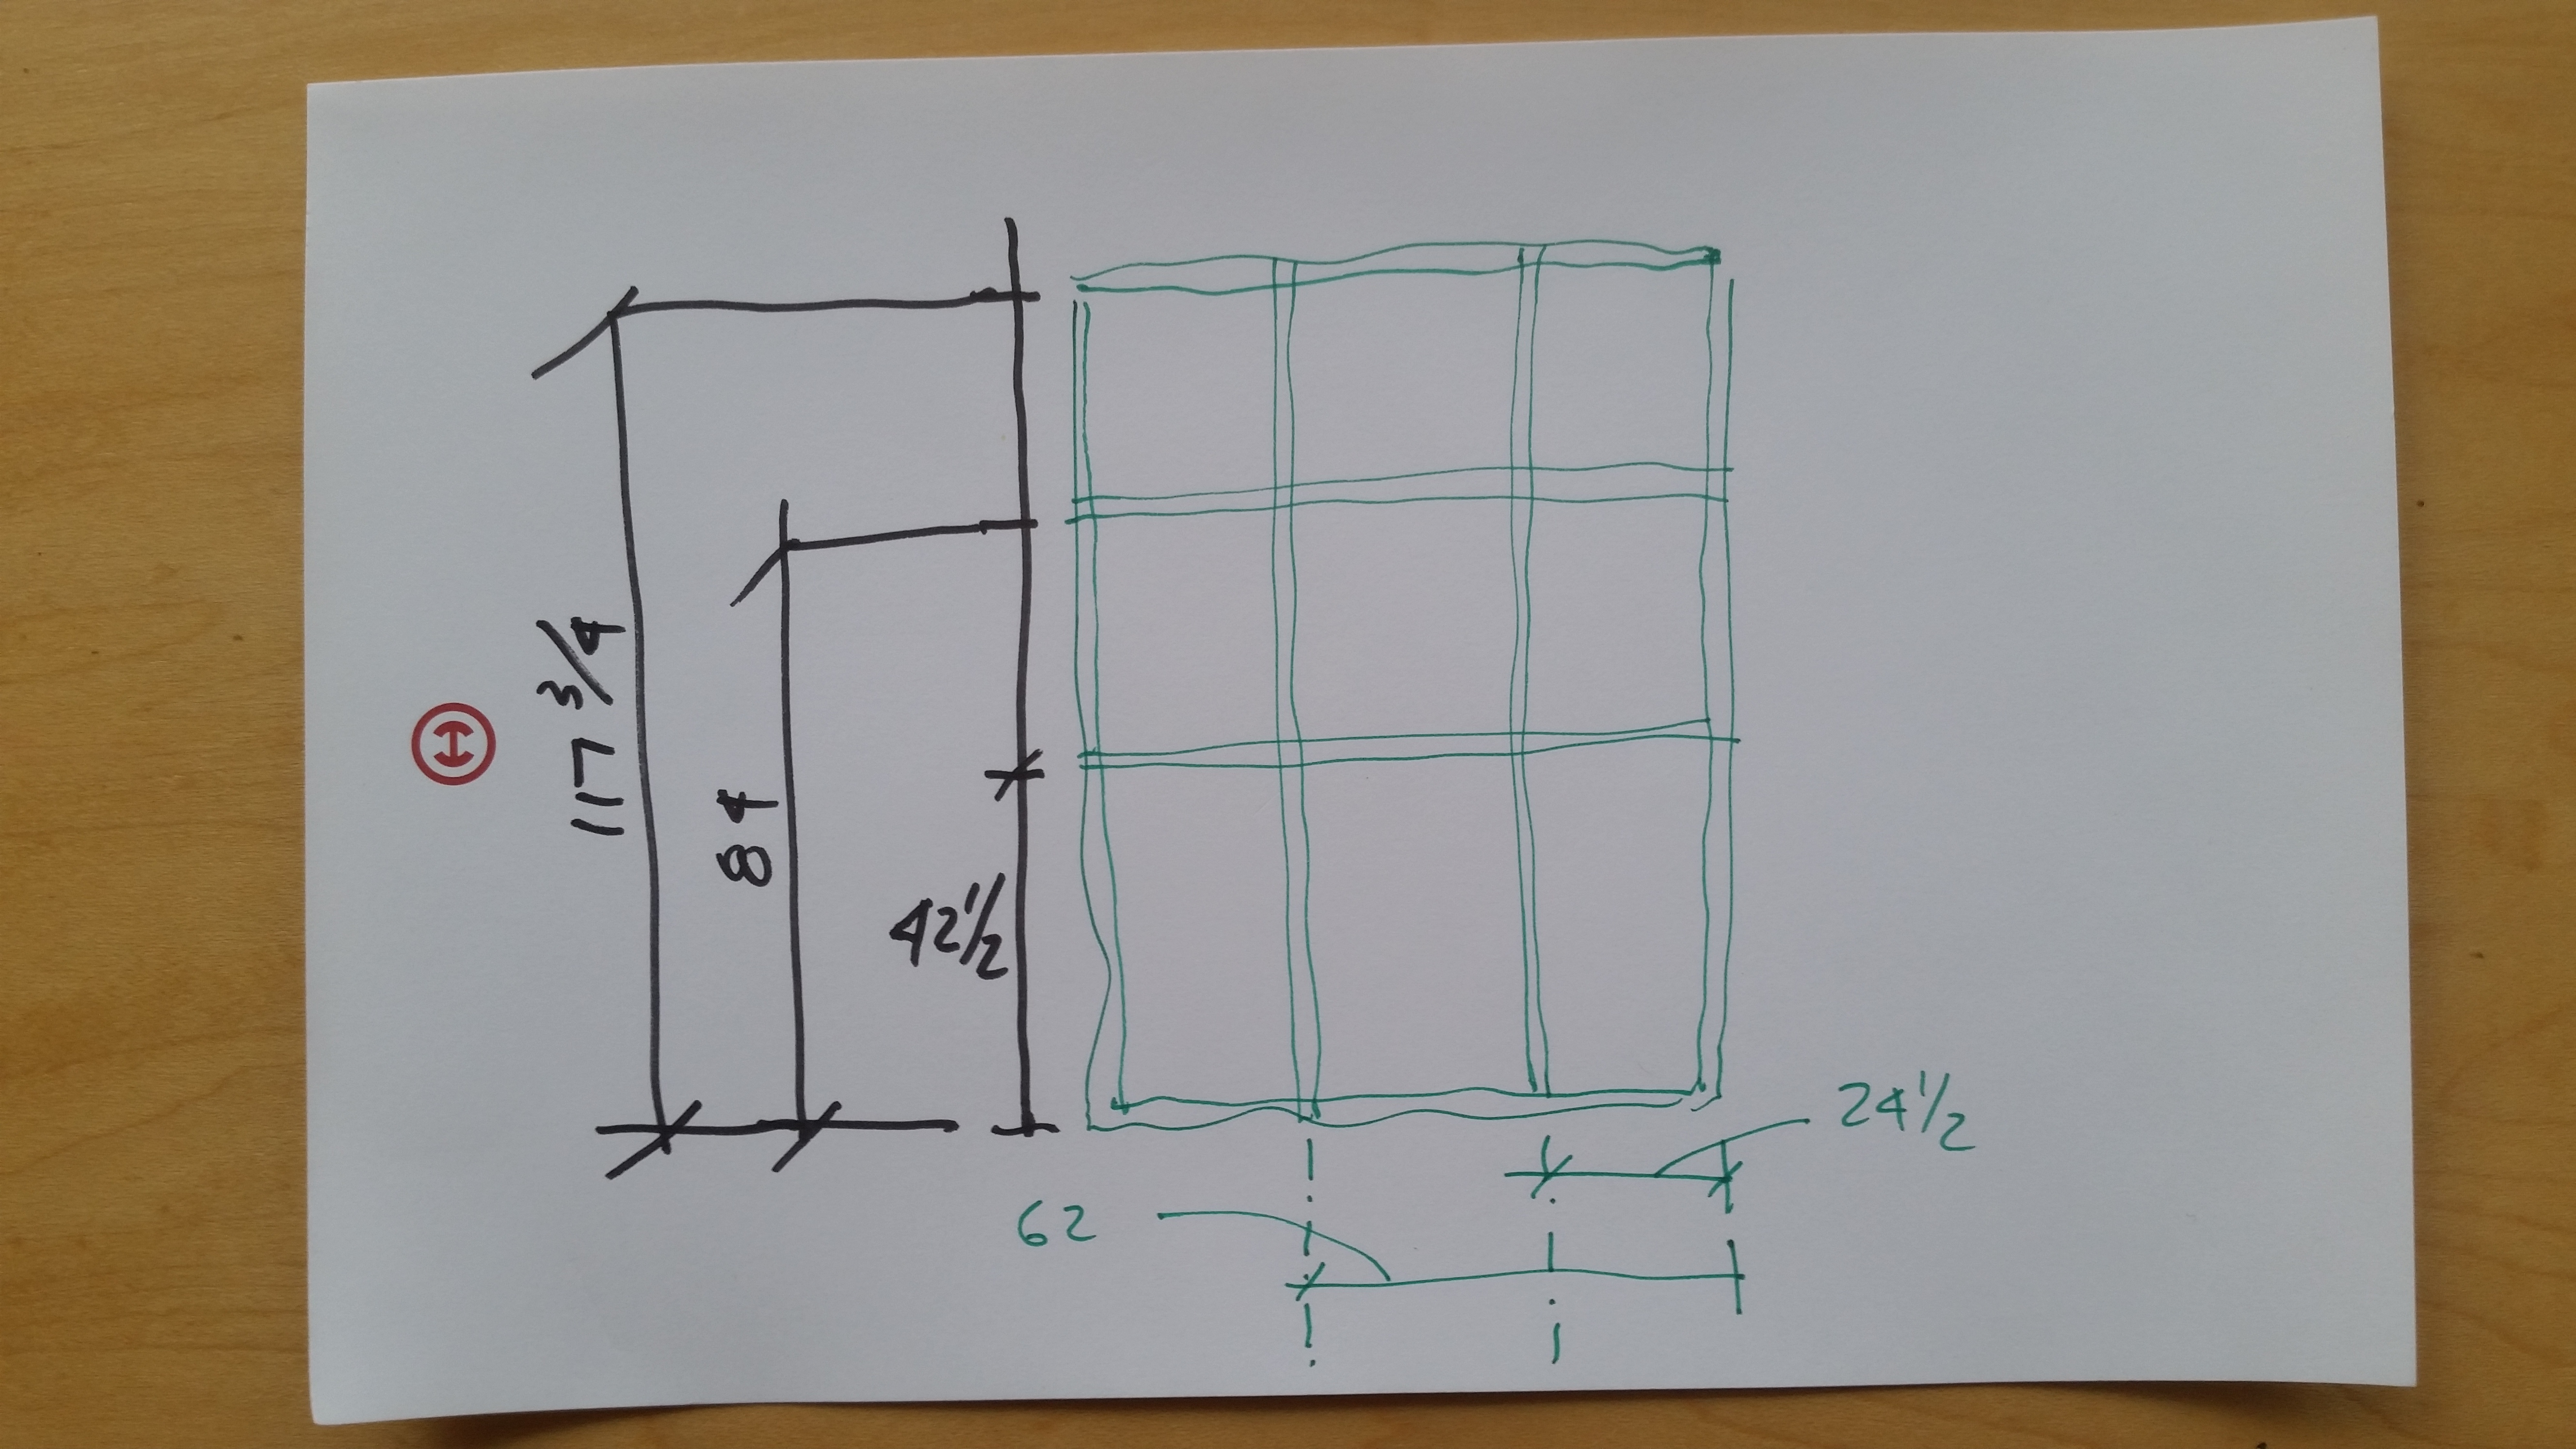 117 3/4
84
42 1/2
24 1/2
62